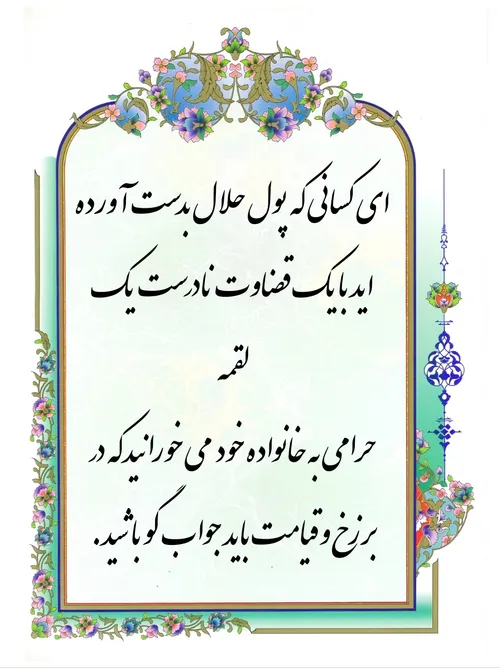 ای کسانی که پول حلال بدست آورده
اید با یک قضاوت نادرست یک
لقمه
حرامی به خانواده خود می خورانید که در
برزخ و قیامت باید جواب گو باشید.